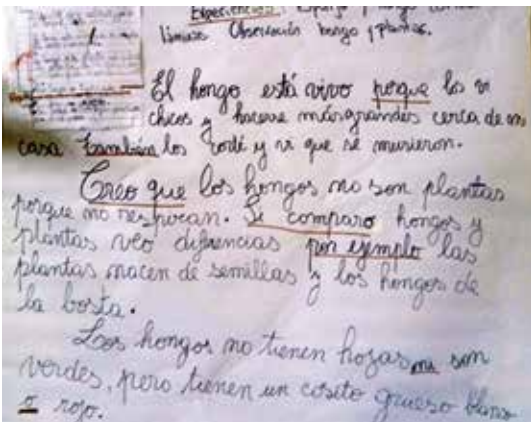 Experiencia:
hongo y plantas.
El hongo está vivo porque los vi
chicos y hacerse más grandes cerca de mi
casa también los corté y vi que se murieron.
Creo que los hongos no son plantas
porque no respiran. Si comparo hongos y
plantas veo diferencias por ejemplo las
plantas nacen de semillas y los hongos de
la bosta.
Los hongos no tienen hojas ni son
verdes, pero tienen un cosito grueso blanco
o rojo.